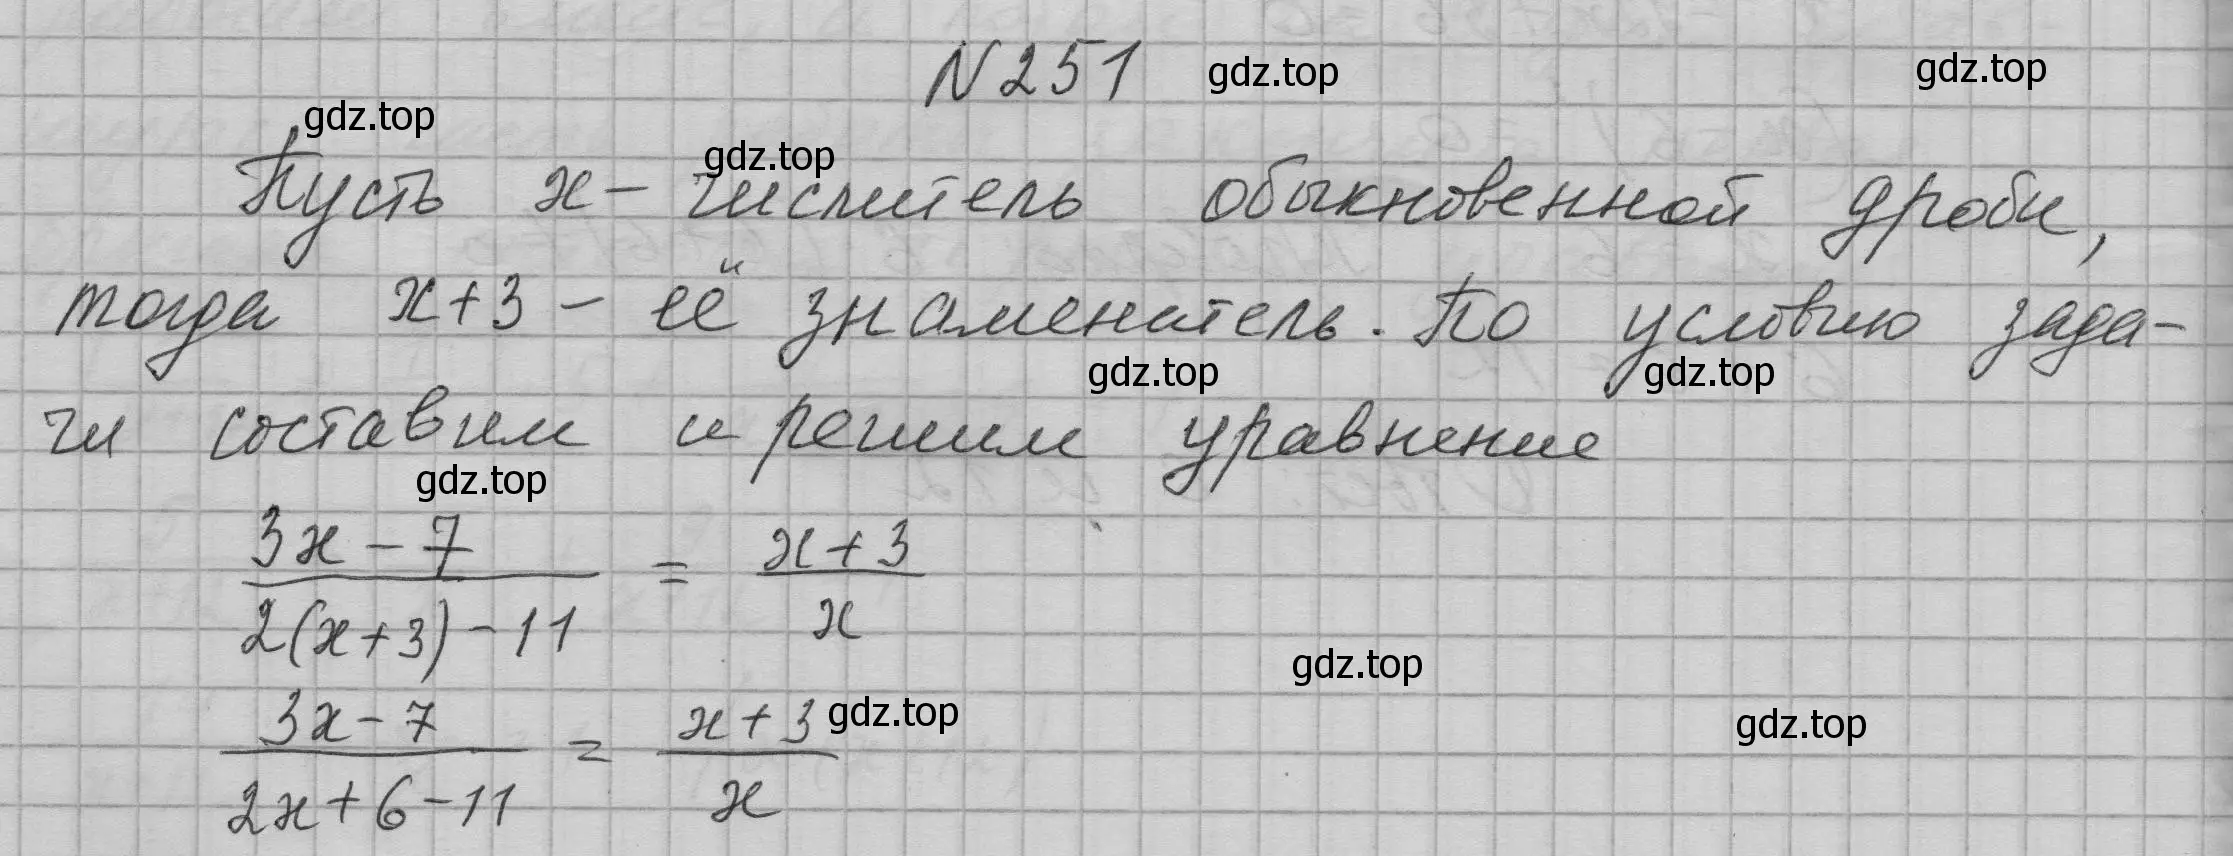 N 251
Пусть x – числитель обыкновенной дроби,
тогда x+3 – её знаменатель. По условию зада-
чи составим и решим уравнение
(3x – 7)/(2(x+3) – 11) = (x+3)/x
(3x – 7)/(2x+6–11) = (x+3)/x
gdz.top
gdz.top
gdz.top
gdz.top
gdz.top
gdz.top
gdz.top
gdz.top
gdz.top
gdz.top